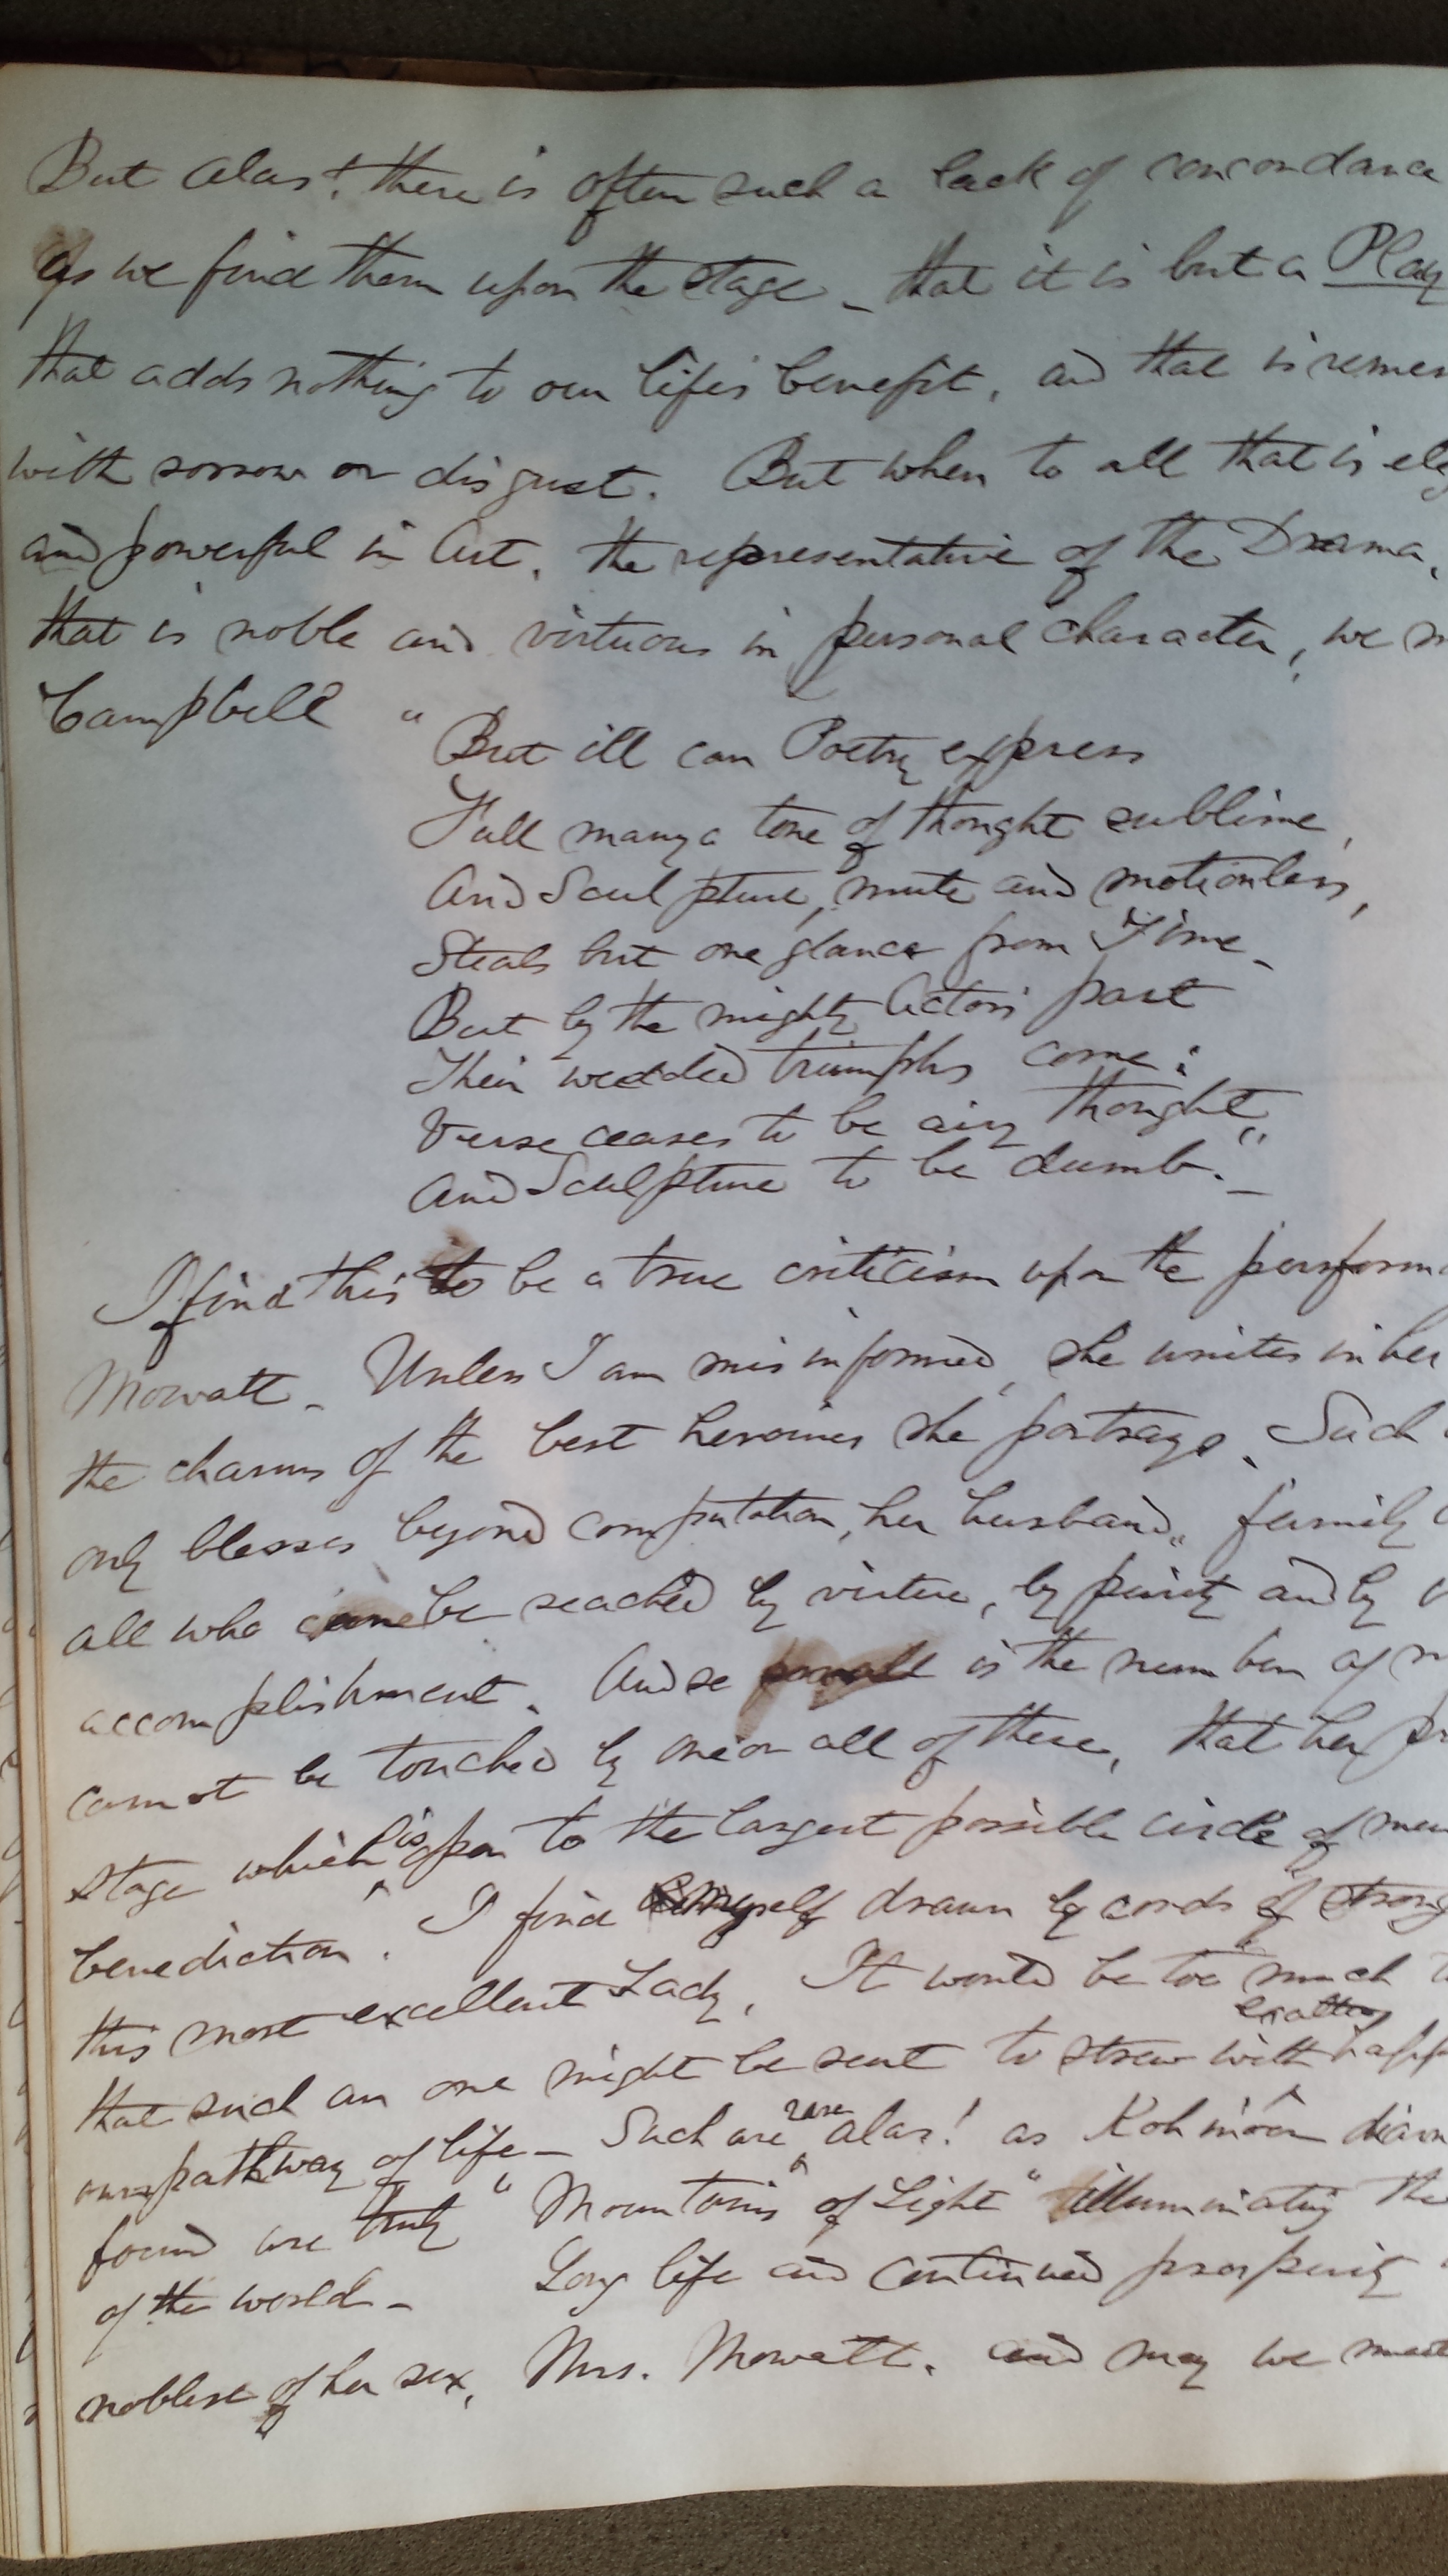 But alas! there is often such a lack of concordance
As we find them upon the stage - that it is but a Play
that adds nothing to our life's benefit, and that is remem
with sorrow or disgust. But when to all that is ele
and powerful in Art, the representative of the Drama,
that is noble and virtuous in personal character, we m
Campbell "But ill can Poetry express
Full many a tone of thought sublime,
And Sculpture, mute and motionless,
Steals but one glance from Time -
But by the mighty Actors part
Their wedded triumphs come:
Verse ceases to be airy thought,
And Sculpture to be dumb." -
I find this to be a true criticism upon the perform
Mowatt - Unless I am misinformed, she unites in her
the charms of the best heroines she portrays. Such
only blesses beyond computation, her husband, family
all who can be reached by virtue, by purity and by
accomplishment. And so small is the number of
cannot be touched by one or all of these, that her pr
stage which is open to the largest possible circle of
benediction. I find myself drawn by cords of strong
this most excellent Lady. It would be too much
that such an one might be sent to strew with happ
our pathway of life - Such are rare alas! as Kohinoor diam
found are truly "Mountains of Light" illuminating the
of the world - Long life and continued prosperity
noblest of her sex, Mrs. Mowatt. and may we meet